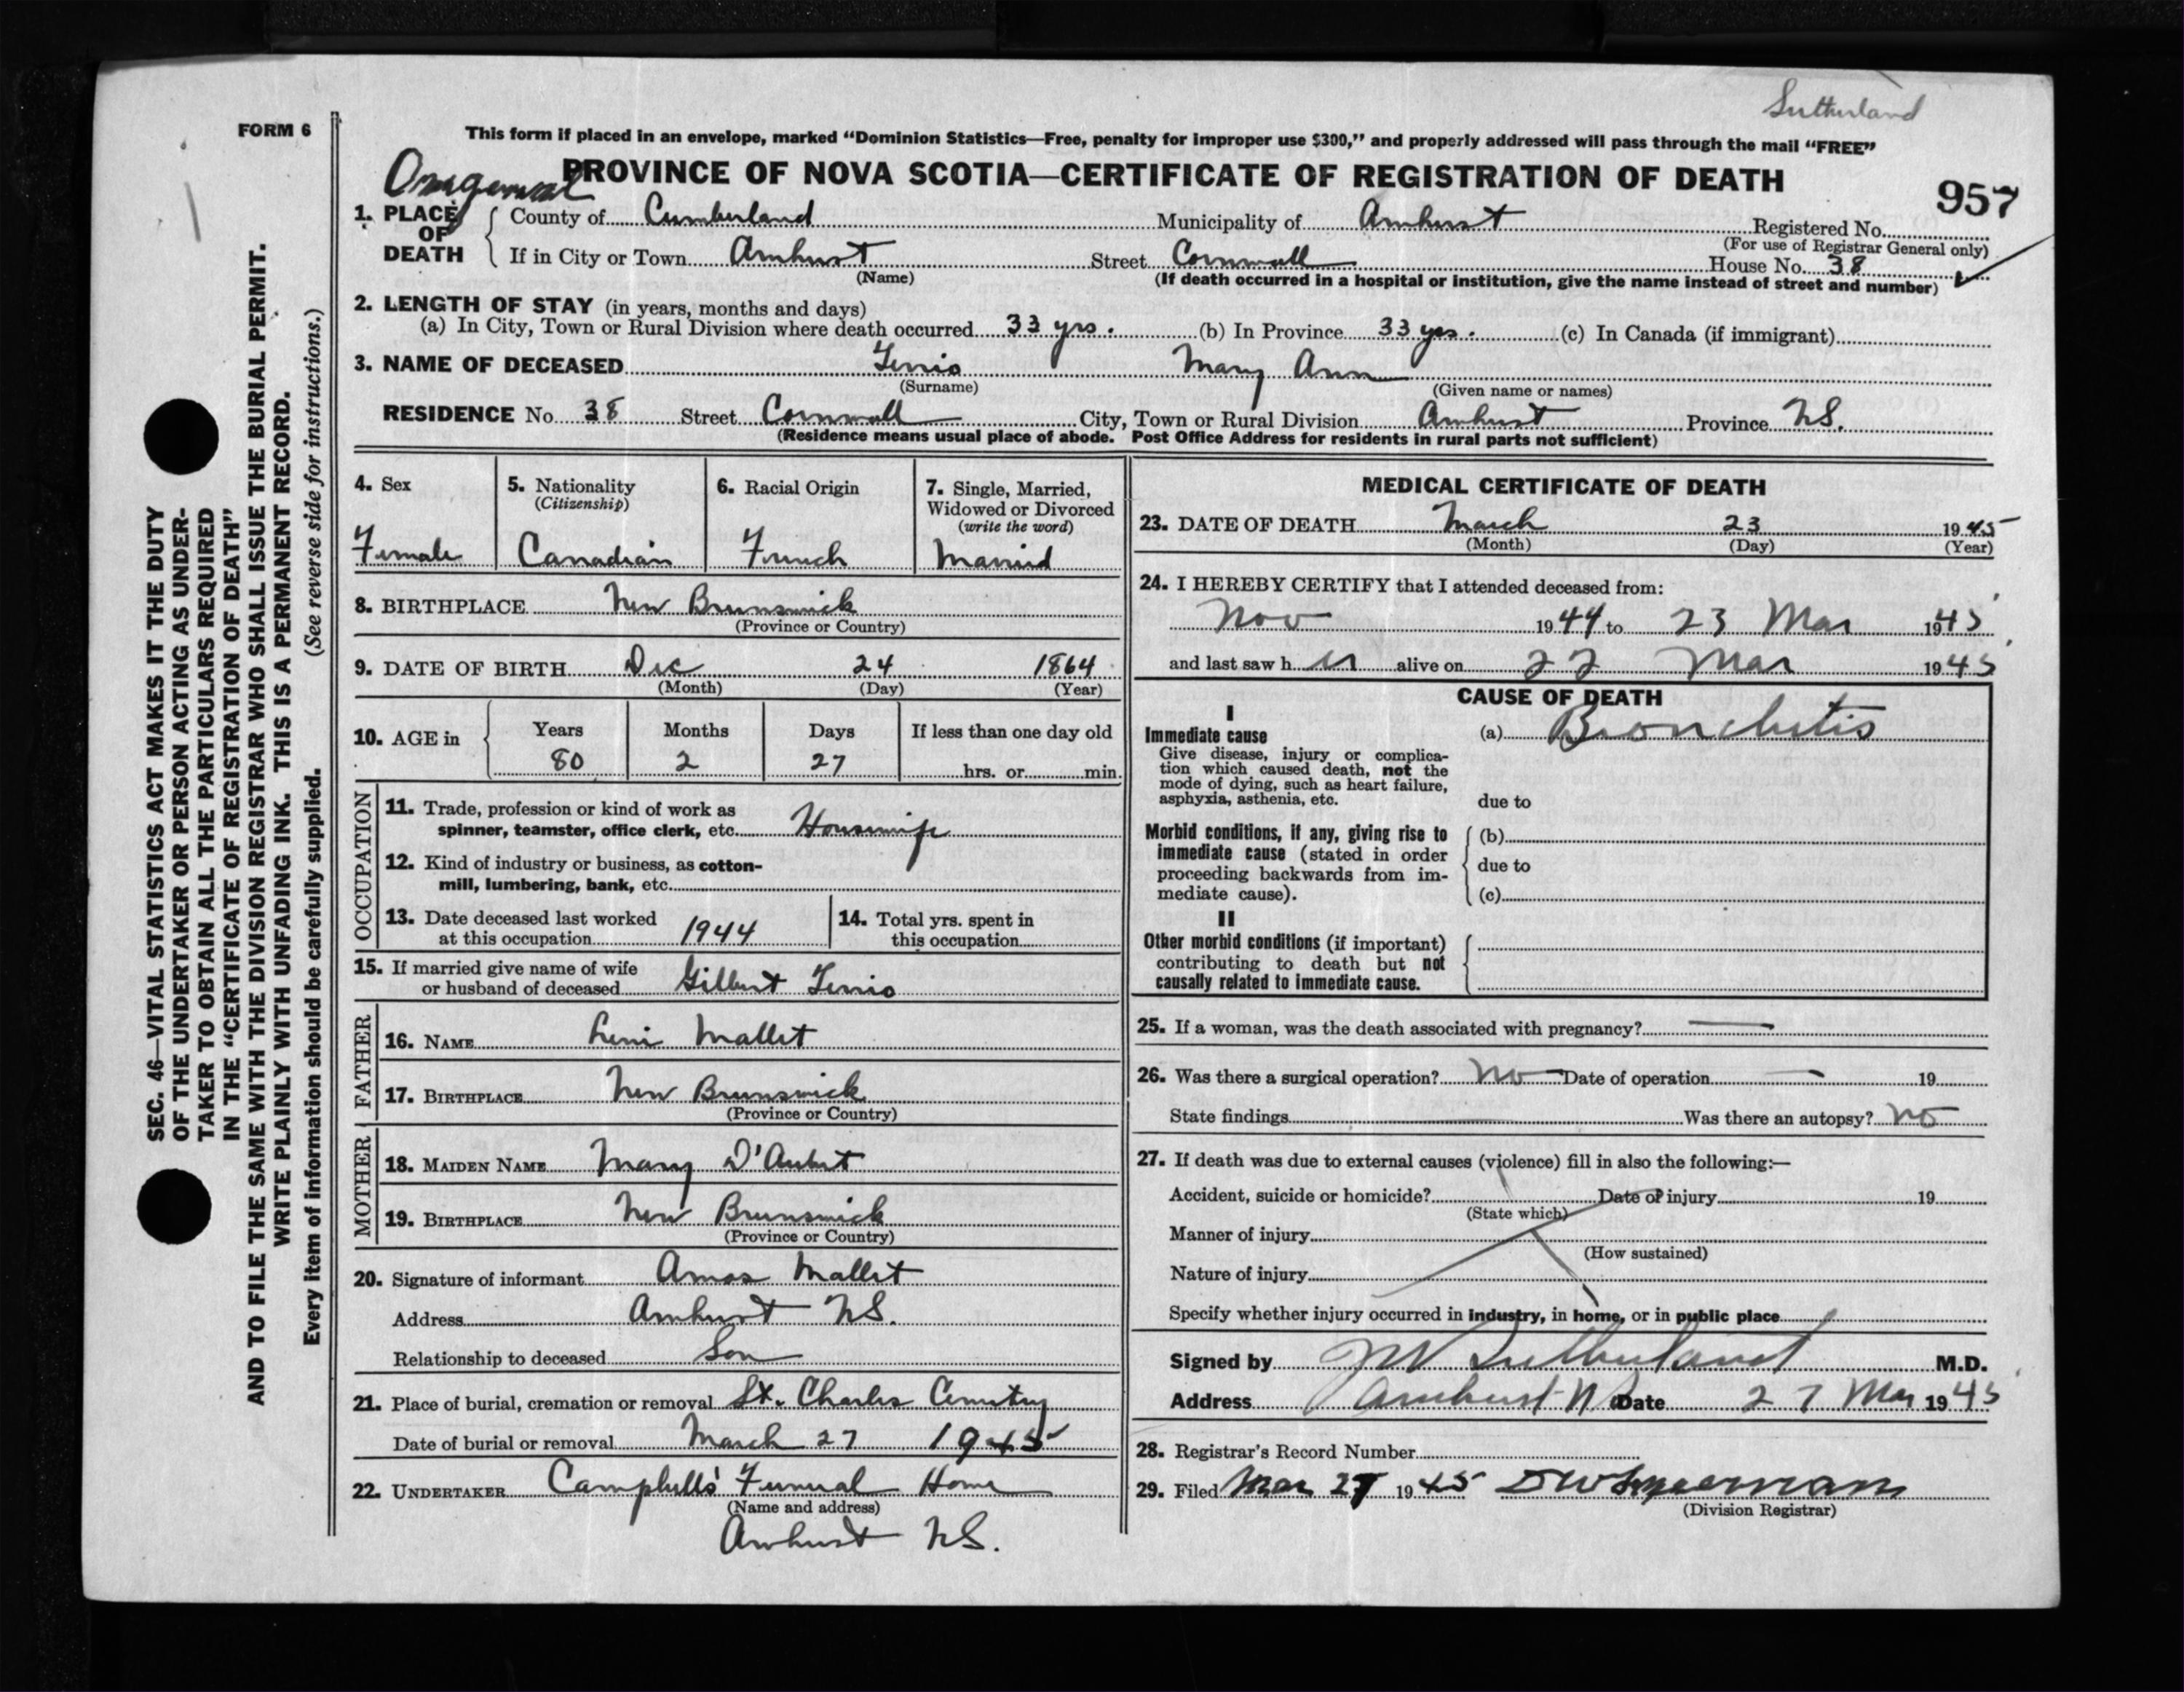 Sutherland
FORM 6
This form if placed in an envelope, marked “Dominion Statistics—Free, penalty for improper use $300,” and properly addressed will pass through the mail “FREE”
PROVINCE OF NOVA SCOTIA—CERTIFICATE OF REGISTRATION OF DEATH
957
1. PLACE OF DEATH County of Cumberland Municipality of Amherst Registered No.
(For use of Registrar General only)
If in City or Town Amherst Street Cornwall House No. 38
(Name) (If death occurred in a hospital or institution, give the name instead of street and number)
2. LENGTH OF STAY (in years, months and days)
(a) In City, Town or Rural Division where death occurred 33 yrs. (b) In Province 33 yrs. (c) In Canada (if immigrant)
3. NAME OF DECEASED Terrio Mary Ann
(Surname) (Given name or names)
RESIDENCE No. 38 Street Cornwall City, Town or Rural Division Amherst Province N.S.
(Residence means usual place of abode. Post Office Address for residents in rural parts not sufficient)
4. Sex
Female
5. Nationality
(Citizenship)
Canadian
6. Racial Origin
French
7. Single, Married,
Widowed or Divorced
(write the word)
Married
8. BIRTHPLACE New Brunswick
(Province or Country)
9. DATE OF BIRTH Dec 24 1864
(Month) (Day) (Year)
10. AGE in Years Months Days If less than one day old
80 2 27 hrs. or min.
OCCUPATION
11. Trade, profession or kind of work as
spinner, teamster, office clerk, etc. Housewife
12. Kind of industry or business, as cotton-
mill, lumbering, bank, etc.
13. Date deceased last worked
at this occupation 1944
14. Total yrs. spent in
this occupation
15. If married give name of wife
or husband of deceased Gilbert Terrio
FATHER
16. NAME Levi Mallet
17. BIRTHPLACE New Brunswick
(Province or Country)
MOTHER
18. MAIDEN NAME Mary D'Aubert
19. BIRTHPLACE New Brunswick
(Province or Country)
20. Signature of informant Amos Mallet
Address Amherst N.S.
Relationship to deceased Son
21. Place of burial, cremation or removal St. Charles Cemetery
Date of burial or removal March 27 1945
22. UNDERTAKER Campbells' Funeral Home
(Name and address)
Amherst N.S.
MEDICAL CERTIFICATE OF DEATH
23. DATE OF DEATH March 23 1945
(Month) (Day) (Year)
24. I HEREBY CERTIFY that I attended deceased from:
Nov 1944 to 23 Mar 1945
and last saw her alive on 22 Mar 1945
CAUSE OF DEATH
I
Immediate cause
Give disease, injury or complica-
tion which caused death, not the
mode of dying, such as heart failure,
asphyxia, asthenia, etc.
(a) Bronchitis
due to
Morbid conditions, if any, giving rise to
immediate cause (stated in order
proceeding backwards from im-
mediate cause).
(b)
due to
(c)
II
Other morbid conditions (if important)
contributing to death but not
causally related to immediate cause.
25. If a woman, was the death associated with pregnancy? —
26. Was there a surgical operation? No Date of operation — 19
State findings Was there an autopsy? No
27. If death was due to external causes (violence) fill in also the following:—
Accident, suicide or homicide? Date of injury 19
(State which)
Manner of injury
(How sustained)
Nature of injury
Specify whether injury occurred in industry, in home, or in public place
Signed by Sutherland M.D.
Address Amherst NS Date 27 Mar 1945
28. Registrar's Record Number
29. Filed Mar 27 1945
(Division Registrar)
SEC. 46—VITAL STATISTICS ACT MAKES IT THE DUTY
OF THE UNDERTAKER OR PERSON ACTING AS UNDER-
TAKER TO OBTAIN ALL THE PARTICULARS REQUIRED
IN THE “CERTIFICATE OF REGISTRATION OF DEATH”
AND TO FILE THE SAME WITH THE DIVISION REGISTRAR WHO SHALL ISSUE THE BURIAL PERMIT.
WRITE PLAINLY WITH UNFADING INK. THIS IS A PERMANENT RECORD.
Every item of information should be carefully supplied. (See reverse side for instructions.)